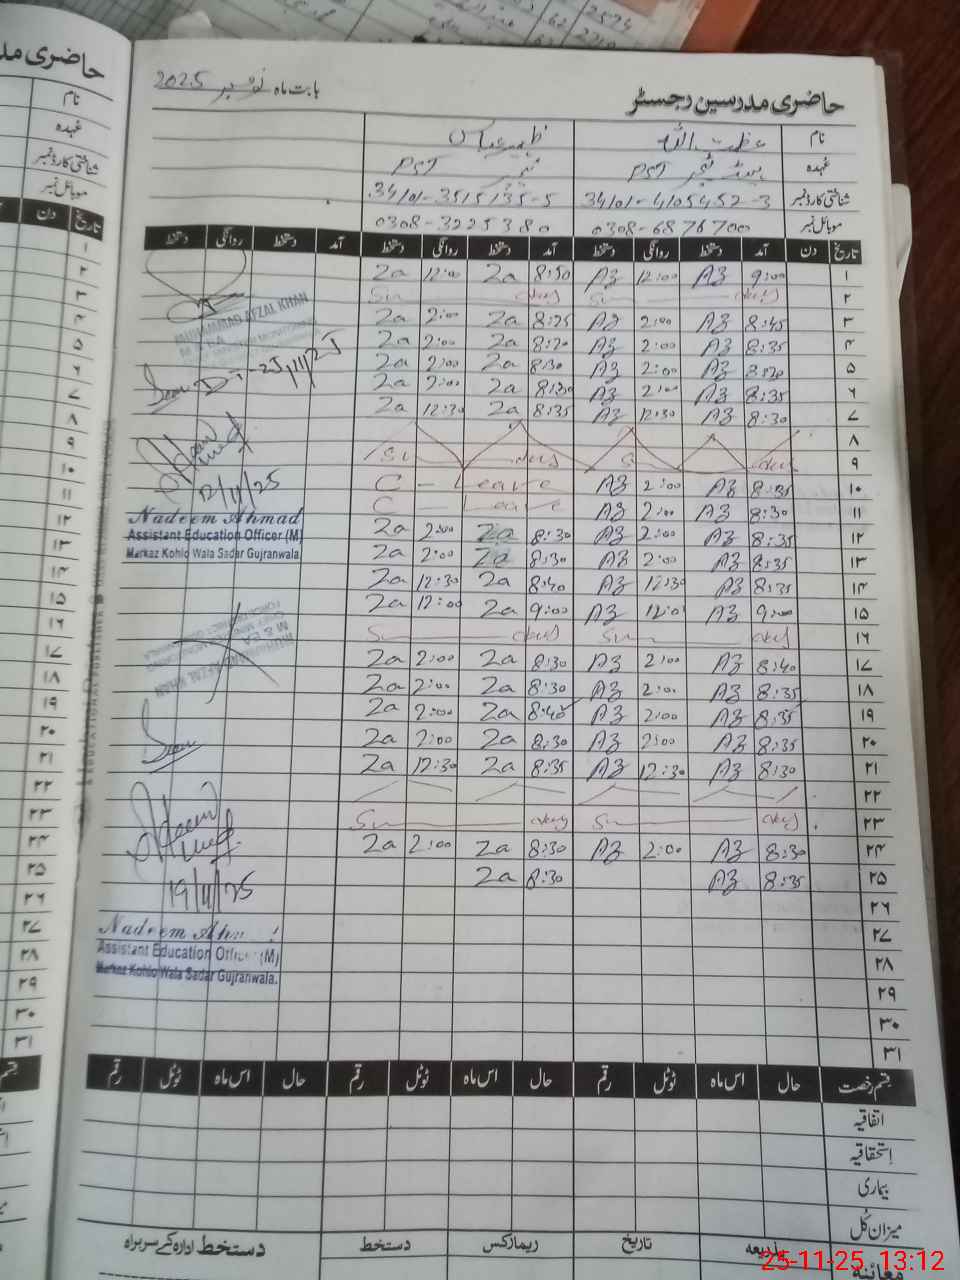 حاضری مدرسین رجسٹر
بابت ماہ نومبر 2025
نام عظمت اللہ ظہیر عباس
عہدہ ہیڈ ٹیچر PST ٹیچر PST
شناختی کارڈ نمبر 34101-4105452-3 34101-3515135-5
موبائل نمبر 0308-6876700 0308-3225380
تاریخ دن آمد دستخط روانگی دستخط آمد دستخط روانگی دستخط آمد دستخط روانگی دستخط
۱ 9:00 AZ 12:00 AZ 8:50 Za 12:00 Za
۲ Sunday Sunday
۳ 8:45 AZ 2:00 AZ 8:25 Za 2:00 Za
۴ 8:35 AZ 2:00 AZ 8:20 Za 2:00 Za
۵ 8:30 AZ 2:00 AZ 8:30 Za 2:00 Za
۶ 8:35 AZ 2:00 AZ 8:30 Za 2:00 Za
۷ 8:30 AZ 12:30 AZ 8:35 Za 12:30 Za
۸
۹ Sunday Sunday
۱۰ 8:35 AZ 2:00 AZ C - Leave
۱۱ 8:30 AZ 2:00 AZ C - Leave
۱۲ 8:35 AZ 2:00 AZ 8:30 Za 2:00 Za
۱۳ 8:35 AZ 2:00 AZ 8:30 Za 2:00 Za
۱۴ 8:35 AZ 12:30 AZ 8:40 Za 12:30 Za
۱۵ 9:00 AZ 12:0 AZ 9:00 Za 12:00 Za
۱۶ Sunday Sunday
۱۷ 8:40 AZ 2:00 AZ 8:30 Za 2:00 Za
۱۸ 8:35 AZ 2:00 AZ 8:30 Za 2:00 Za
۱۹ 8:35 AZ 2:00 AZ 8:40 Za 2:00 Za
۲۰ 8:35 AZ 2:00 AZ 8:30 Za 2:00 Za
۲۱ 8:30 AZ 12:30 AZ 8:35 Za 12:30 Za
۲۲
۲۳ Sunday Sunday
۲۴ 8:30 AZ 2:00 AZ 8:30 Za 2:00 Za
۲۵ 8:35 AZ 8:30 Za
۲۶
۲۷
۲۸
۲۹
۳۰
۳۱
MUHAMMAD AFZAL KHAN
12/11/25
Nadeem Ahmad
Assistant Education Officer (M)
Markaz Kohlo Wala Sadar Gujranwala.
MUHAMMAD AFZAL KHAN
19/11/25
Nadeem Ah
Assistant Education Officer (M)
Markaz Kohlo Wala Sadar Gujranwala.
بقسم رخصت حال اس ماہ ٹوٹل رقم حال اس ماہ ٹوٹل رقم حال اس ماہ ٹوٹل رقم
اتفاقیہ
استحقاقیہ
بیماری
میزان کُل
تاریخ ریمارکس دستخط دستخط ادارہ کے سربراہ
معائنہ
حاضری مد
نام
عہدہ
شناختی کارڈ نمبر
موبائل نمبر
تاریخ دن
۱
۲
۳
۴
۵
۶
۷
۸
۹
۱۰
۱۱
۱۲
۱۳
۱۴
۱۵
۱۶
۱۷
۱۸
۱۹
۲۰
۲۱
۲۲
۲۳
۲۴
۲۵
۲۶
۲۷
۲۸
۲۹
۳۰
۳۱
25-11-25 13:12